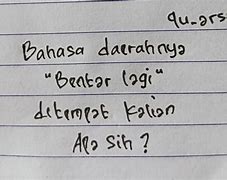 qu_ars
Bahasa daerahnya
"Bentar lagi"
ditempat kalian
Apa sih ?